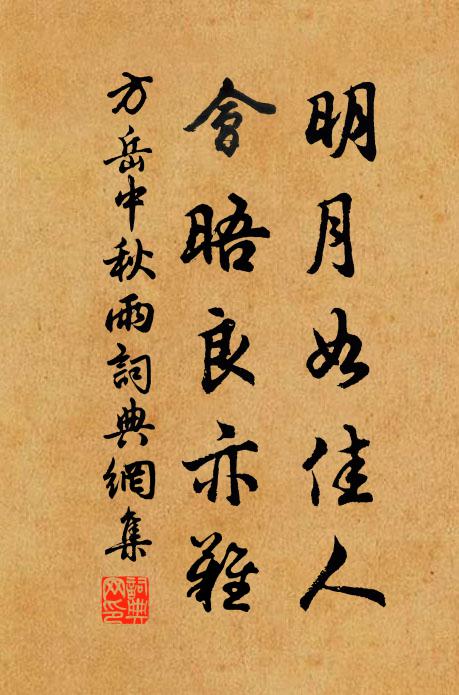 明月如佳人
會晤良亦難
方岳中秋雨詞典網集
詞典網印